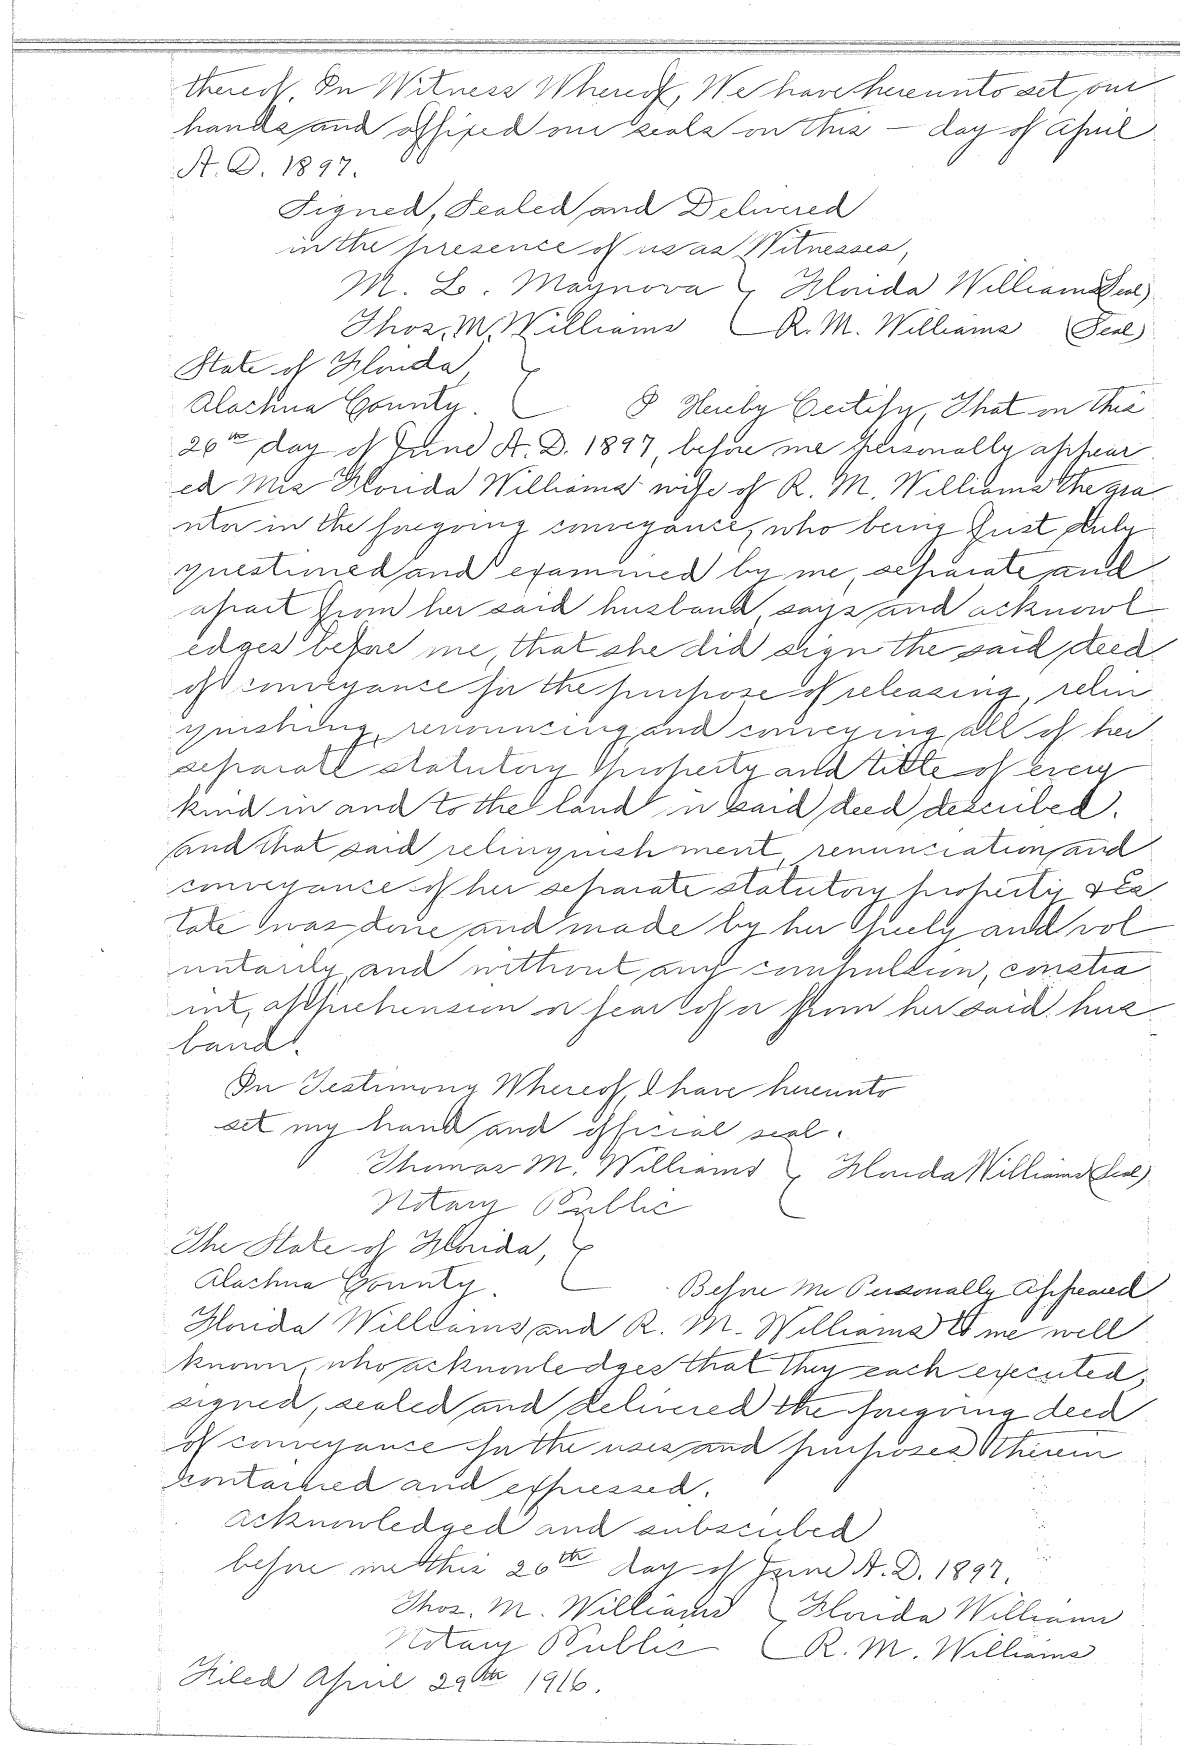 thereof. In Witness Whereof, We have hereunto set our
hands and affixed our seals on this — day of April
A. D. 1897.
Signed, Sealed and Delivered
in the presence of us as Witnesses,
M. L. Maynova } Florida Williams (Seal)
Thos. M. Williams R. M. Williams (Seal)
State of Florida, }
Alachua County. I Hereby Certify, That on this
26th day of June A. D. 1897, before me personally appear
ed Mrs Florida Williams wife of R. M. Williams the gra
ntor in the foregoing conveyance, who being first duly
questioned and examined by me, separate and
apart from her said husband, says and acknowl
edges before me, that she did sign the said deed
of conveyance for the purpose of releasing, relin
quishing, renouncing and conveying all of her
separate statutory property and title of every
kind in and to the land in said deed described.
and that said relinquishment, renunciation and
conveyance of her separate statutory property & Es
tate was done and made by her freely and vol
untarily and without any compulsion, constra
int, apprehension or fear of or from her said hus
band.
In Testimony Whereof, I have hereunto
set my hand and official seal.
Thomas M. Williams } Florida Williams (Seal)
Notary Public
The State of Florida, }
Alachua County. Before Me Personally Appeared
Florida Williams and R. M. Williams to me well
known, who acknowledges that they each executed,
signed, sealed and delivered the foregoing deed
of conveyance for the uses and purposes therein
contained and expressed.
acknowledged and subscribed
before me this 26th day of June A. D. 1897.
Thos. M. Williams } Florida Williams
Notary Public R. M. Williams
Filed April 29th 1916.